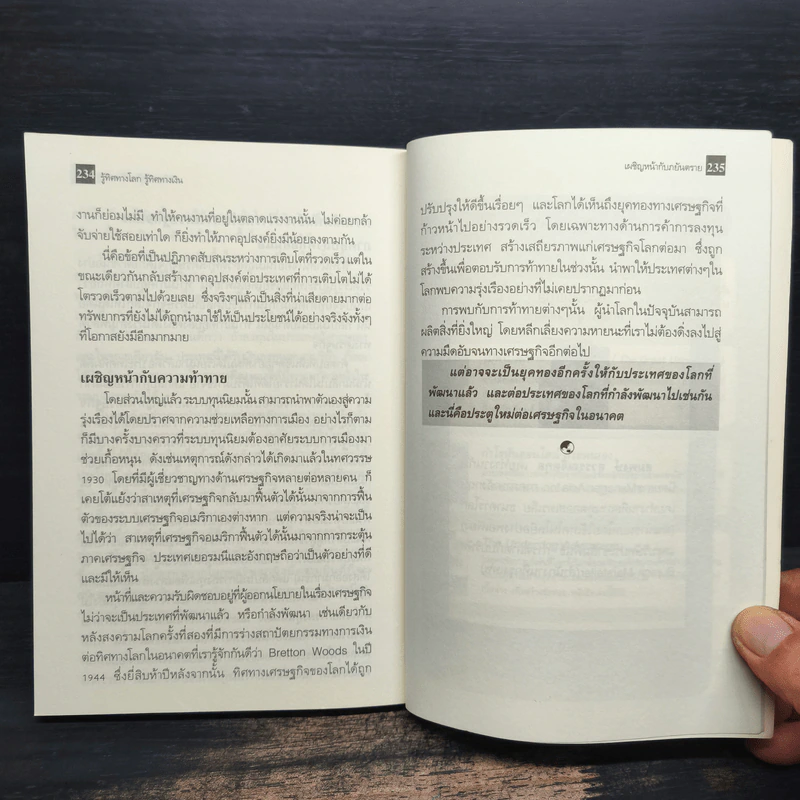 234 รู้ทิศทางโลก รู้ทิศทางเงิน
งานก็ย่อมไม่มี ทำให้คนงานที่อยู่ในตลาดแรงงานนั้น ไม่ค่อยกล้า
จับจ่ายใช้สอยเท่าใด ก็ยิ่งทำให้ภาคอุปสงค์ยิ่งมีน้อยลงตามกัน
นี่คือข้อที่เป็นปฏิภาคสับสนระหว่างการเติบโตที่รวดเร็ว แต่ใน
ขณะเดียวกันกลับสร้างภาคอุปสงค์ต่อประเทศที่การเติบโตไม่ได้
โตรวดเร็วตามไปด้วยเลย ซึ่งจริงๆแล้วเป็นสิ่งที่น่าเสียดายมากต่อ
ทรัพยากรที่ยังไม่ได้ถูกนำมาใช้ให้เป็นประโยชน์ได้อย่างจริงจังทั้งๆ
ที่โอกาสยังมีอีกมากมาย
เผชิญหน้ากับความท้าทาย
โดยส่วนใหญ่แล้ว ระบบทุนนิยมนั้น สามารถนำพาตัวเองสู่ความ
รุ่งเรืองได้โดยปราศจากความช่วยเหลือทางการเมือง อย่างไรก็ตาม
ก็มีบางครั้งบางคราวที่ระบบทุนนิยมต้องอาศัยระบบการเมืองมา
ช่วยเกื้อหนุน ดังเช่นเหตุการณ์ดังกล่าวได้เกิดมาแล้วในทศวรรษ
1930 โดยที่มีผู้เชี่ยวชาญทางด้านเศรษฐกิจหลายต่อหลายคน ก็
เคยโต้แย้งว่าสาเหตุที่เศรษฐกิจกลับมาฟื้นตัวได้นั้นมาจากการฟื้น
ตัวของระบบเศรษฐกิจอเมริกาเองต่างหาก แต่ความจริงน่าจะเป็น
ไปได้ว่า สาเหตุที่เศรษฐกิจอเมริกาฟื้นตัวได้นั้นมาจากการกระตุ้น
ภาคเศรษฐกิจ ประเทศเยอรมนีและอังกฤษถือว่าเป็นตัวอย่างที่ดี
และมีให้เห็น
หน้าที่และความรับผิดชอบอยู่ที่ผู้ออกนโยบายในเรื่องเศรษฐกิจ
ไม่ว่าจะเป็นประเทศที่พัฒนาแล้ว หรือกำลังพัฒนา เช่นเดียวกับ
หลังสงครามโลกครั้งที่สองที่มีการร่างสถาปัตยกรรมทางการเงิน
ต่อทิศทางโลกในอนาคตที่เรารู้จักกันดีว่า Bretton Woods ในปี
1944 ซึ่งยี่สิบห้าปีหลังจากนั้น ทิศทางเศรษฐกิจของโลกได้ถูก
เผชิญหน้ากับภยันตราย 235
ปรับปรุงให้ดีขึ้นเรื่อยๆ และโลกได้เห็นถึงยุคทองทางเศรษฐกิจที่
ก้าวหน้าไปอย่างรวดเร็ว โดยเฉพาะทางด้านการค้าการลงทุน
ระหว่างประเทศ สร้างเสถียรภาพแก่เศรษฐกิจโลกต่อมา ซึ่งถูก
สร้างขึ้นเพื่อตอบรับการท้าทายในช่วงนั้น นำพาให้ประเทศต่างๆใน
โลกพบความรุ่งเรืองอย่างที่ไม่เคยปรากฏมาก่อน
การพบกับการท้าทายต่างๆนั้น ผู้นำโลกในปัจจุบันสามารถ
ผลิตสิ่งที่ยิ่งใหญ่ โดยหลีกเลี่ยงความหายนะที่เราไม่ต้องดิ่งลงไปสู่
ความมืดอับจนทางเศรษฐกิจอีกต่อไป
แต่อาจจะเป็นยุคทองอีกครั้งให้กับประเทศของโลกที่
พัฒนาแล้ว และต่อประเทศของโลกที่กำลังพัฒนาไปเช่นกัน
และนี่คือประตูใหม่ต่อเศรษฐกิจในอนาคต